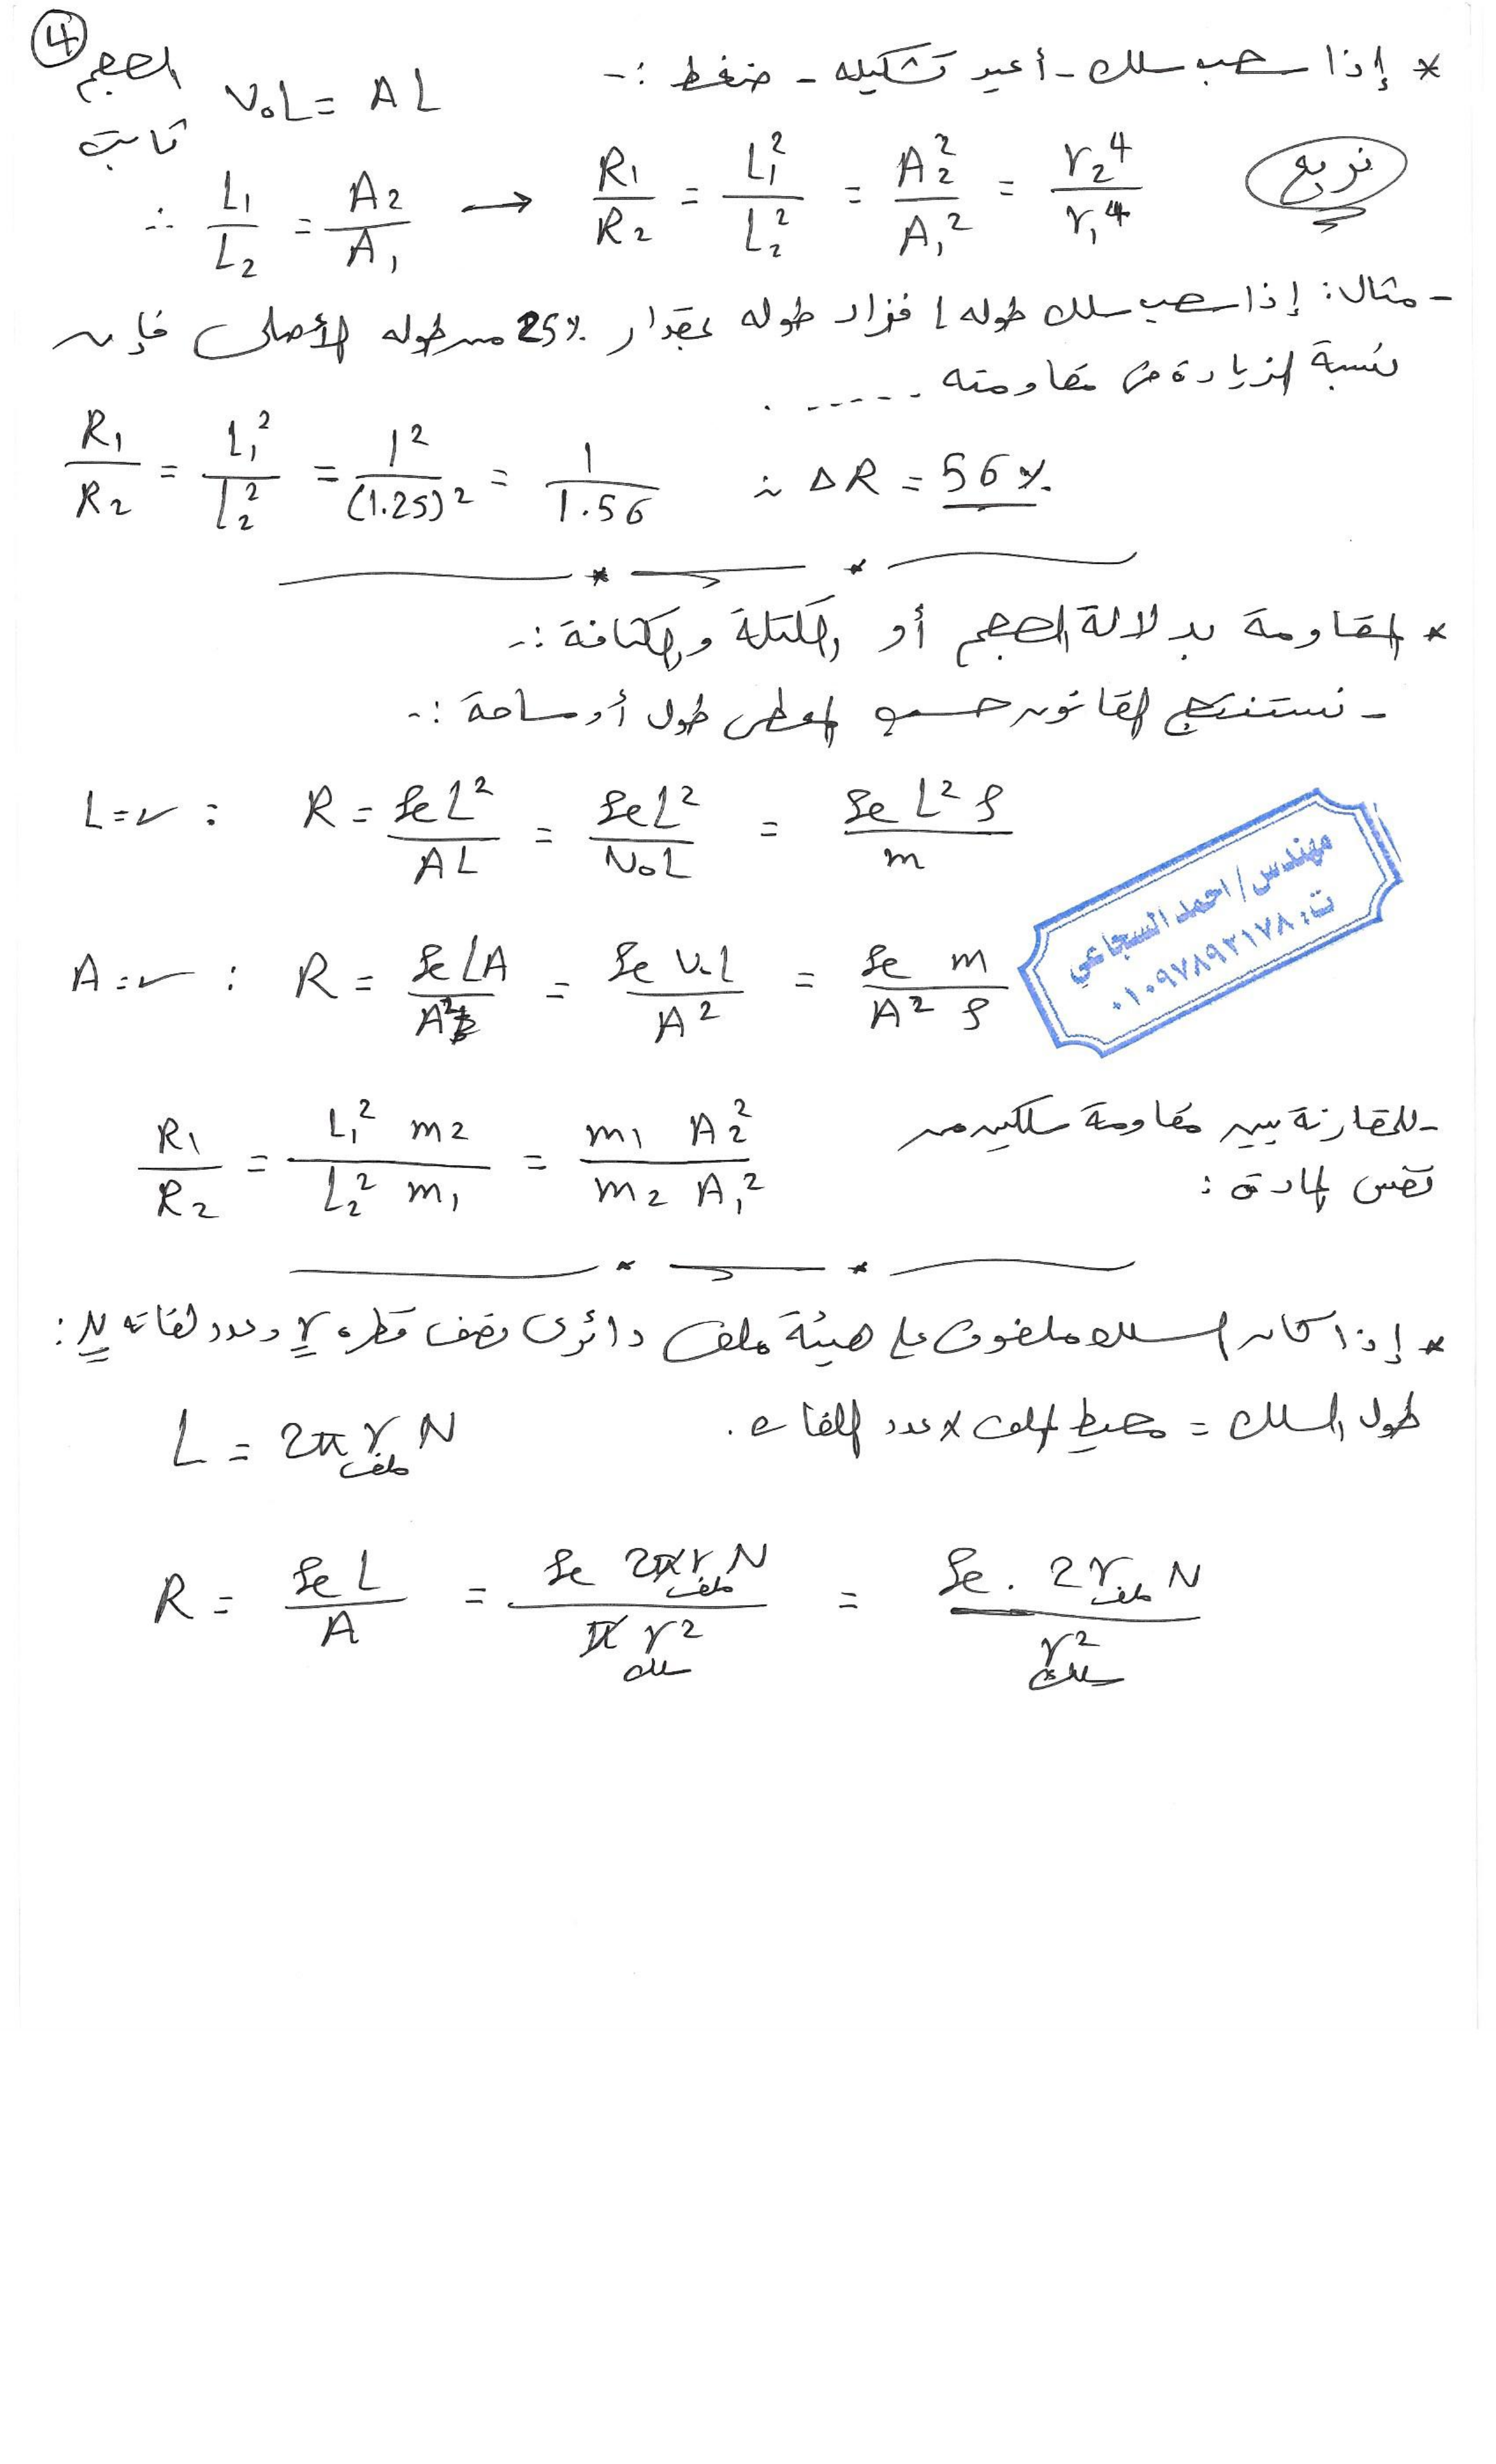 ④
* إذا سحب سلك - أعيد تشكيله - ضغط :-
Vol = AL الحجم ثابت
∴ L₁/L₂ = A₂/A₁ → R₁/R₂ = L₁²/L₂² = A₂²/A₁² = r₂⁴/r₁⁴ نربع
- مثال: إذا سحب سلك طوله L فزاد طوله بمقدار 25% من طوله الأصلى فإن
نسبة الزيادة فى مقاومته ......
R₁/R₂ = L₁²/L₂² = 1²/(1.25)² = 1/1.56 ∴ ΔR = 56%
* المقاومة بدلالة الحجم أو الكتلة والكثافة :-
- نستنتج القانون حسب المعطى طول أو مساحة :-
L = ✓ : R = ρe L²/AL = ρe L²/Vol = ρe L² ρ/m
مهندس/ احمد السجاعي
ت: ٠١٠٩٧٨٩٢١٧٨
A = ✓ : R = ρe LA/A² = ρe Vol/A² = ρe m/A² ρ
- للمقارنة بين مقاومة سلكين من
نفس المادة :
R₁/R₂ = L₁² m₂/L₂² m₁ = m₁ A₂²/m₂ A₁²
* إذا كان السلك ملفوف على هيئة ملف دائرى نصف قطره r وعدد لفاته N :
طول السلك = محيط الملف × عدد اللفات .
L = 2π r ملف N
R = ρe L/A = ρe 2π r ملف N/π r² سلك = ρe . 2 r ملف N/r² سلك